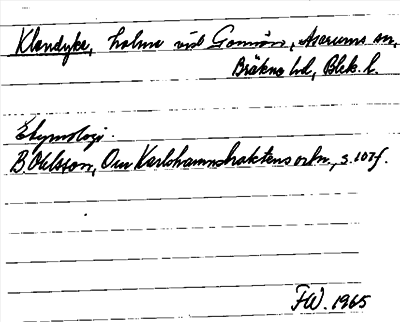 Klondyke, holme vid Gonnön, Asarums sn,
Bräkne hd, Blek. l.
Etymologi.
B. Ohlsson, Om Karlshamnstraktens ortn., s. 107f.
FW. 1965